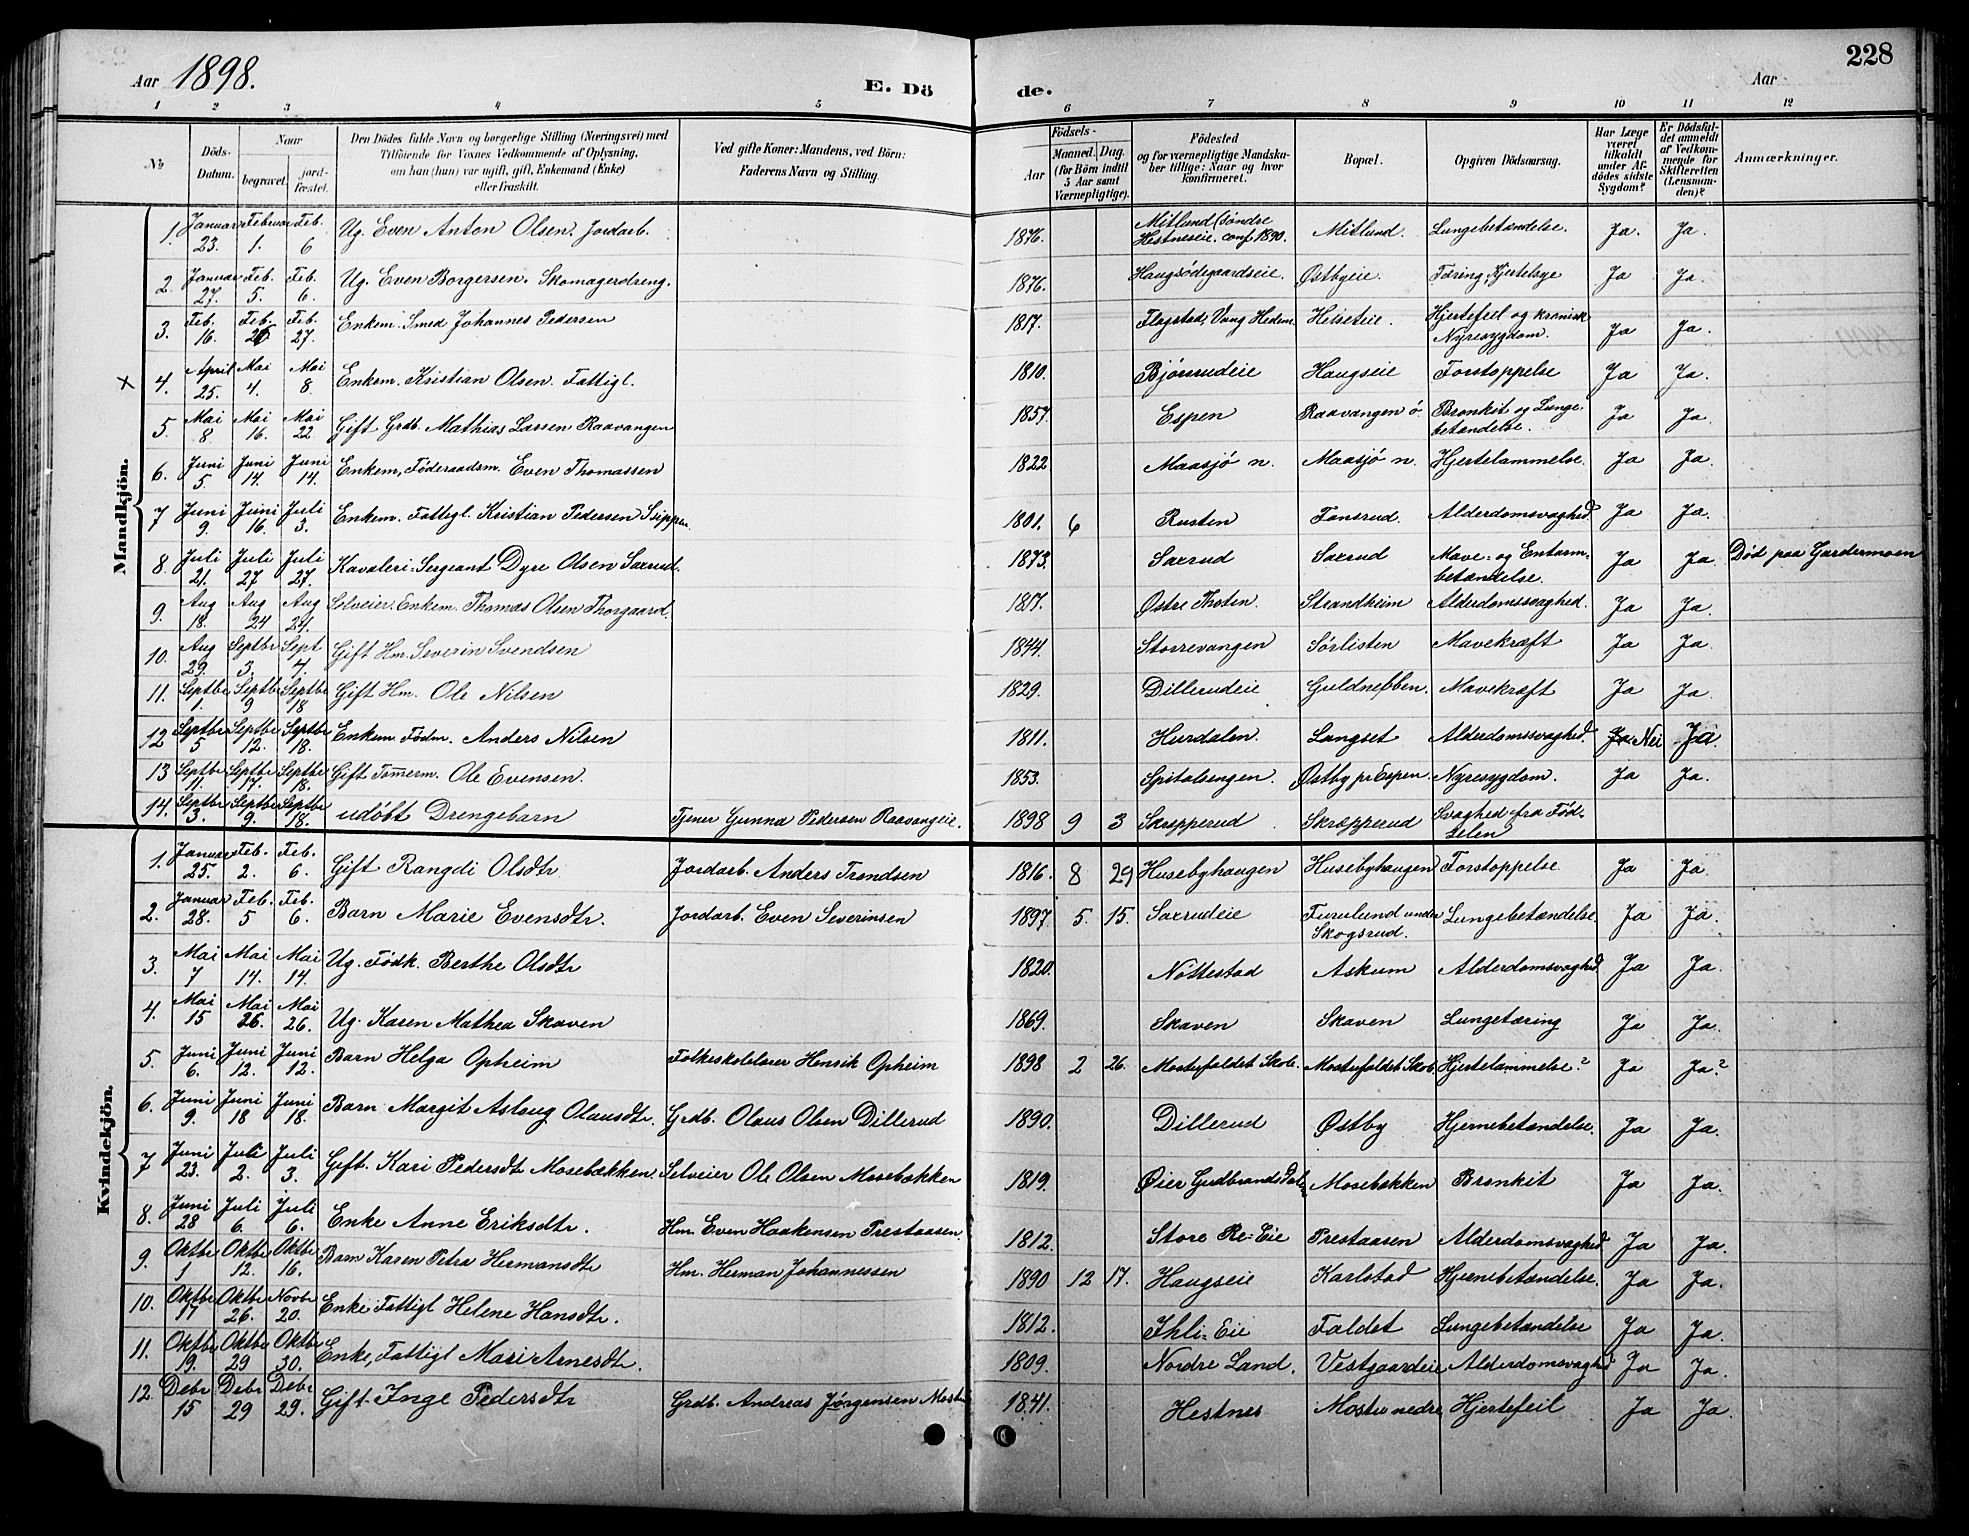 Aar 1898. E. Dö de. Aar 228
1 2 3 4 5 6 7 8 9 10 11 12
No Döds-Datum. Naar begravet. jord-fæstet. Den Dödes fulde Navn og borgerlige Stilling (Næringsvei) med Tilföiende for Voxnes Vedkommende af Oplysning, om han (hun) var ugift, gift, Enkemand (Enke) eller fraskilt. Ved gifte Koner: Mandens, ved Börn: Faderens Navn og Stilling. Födsels- Aar Maaned. Dag. (for Börn indtil 5 Aar samt Værnepligtige). Födested og for værnepligtige Mandskaber tillige: Naar og hvor konfirmeret. Bopæl. Opgiven Dödsaarsag. Har Læge været tilkaldt under Afdödes sidste Sygdom? Er Dödsfaldet anmeldt af Vedkommende for Skifteretten (Lensmanden)? Anmærkninger.
Mandkjön.
1. Januar 23. Februar 1. Feb. 6 Ug. Even Anton Olsen. Jordarb. 1876. Mitlund (söndre Hestneseie. conf. 1890. Mitlund. Lungebetændelse. Ja. Ja.
2. Januar 27. Feb. 5. Feb. 6. Ug. Even Borgersen. Skomagerdreng. 1876. Haugsödegaardseie. Østbyeie. Tæring, Kjertelsyge Ja Ja.
3. Feb. 16. Feb. 26 Feb. 27. Enkem. Smed Johannes Pedersen 1817. Flagstad, Vang Hedem. Helseteie. Hjertefeil og kronisk Nyresygdom. Ja Ja.
× 4. April 25. Mai 4. Mai 8 Enkem. Kristian Olsen. Fattigl. 1810. Bjørsrudeie Haugseie Forstoppelse Ja Ja.
5. Mai 8 Mai 16. Mai 22 Gift Grdb. Mathias Larsen Raavangen 1857 Espen Raavangen ö. Bronkit og Lungebetændelse. Ja Ja.
6. Juni 5. Juni 14. Juni 14. Enkem, Föderaadsm. Even Thomassen 1822 Maasjö n. Maasjö n. Hjertelammelse. Ja Ja.
7 Juni 9. Juni 16. Juli 3. Enkem. Fattigl. Kristian Pedersen 1801. 6 Rusten Fonsrud. Alderdomsvaghed Ja Ja.
8. Juli 21. Juli 27 Juli 27. Kavaleri-Sergeant Dyre Olsen Saxrud. 1873. Saxrud Saxrud Mave- og Entarmbetændelse. Ja Ja Död paa Gardermoen
9. Aug 18. Aug 24 Aug 24. Selveier Enkem. Thomas Olsen Thorgaard. 1817. Østre Thoten. Strandheim Alderdomssvaghed. Ja Ja.
10. Aug 29. Septbr 3. Sept 4. Gift Hm. Severin Svendsen 1844. Storrevangen Sörlisten Mavekræft Ja Ja.
11. Septbr 1. Septbr 9 Septbr 18 Gift Hm. Ole Nilsen 1829. Dillerudeie Guldnebben. Mavekræft Ja Ja.
12 Septbr 5 Septbr 12. Septbr 18. Enkem. Födm. Anders Nilsen 1811. Hurdalen. Langset Alderdomssvaghed. Ja Nei Ja.
13 Septbr 11. Septbr 17. Septbr 18. Gift Tømmerm. Ole Evensen. 1853. Spitalsengen. Østby pr Espen. Nyresygdom. Ja Ja.
14. Septbr 3. Septbr 9. Septbr 18. udöbt Drengebarn Tjener Gunna Pedersen Raavangeie. 1898 9 3 Skrepperud Skræpperud Svaghed fra Fødselen
Kvindekjön.
1. Januar 25. Feb. 2. Feb. 6. Gift Rangdi Olsdtr. Jordarb. Anders Trondsen 1816. 8 29 Husebyhaugen Husebyhaugen Forstoppelse. Ja Ja.
2. Januar 28. Feb. 5 Feb. 6. Barn Marie Evensdtr. Jordarb. Even Severinsen 1897. 5. 15. Saxrudeie Furulund under Skogsrud. Lungebetændelse. Ja Ja.
3. Mai 7 Mai 14. Mai 14. Ug. Födk. Berthe Olsdtr 1820. Nöttestad Askum Alderdomsvaghed Ja Ja.
4. Mai 15 Mai 26. Mai 26. Ug. Karen Mathea Skaven 1869. Skaven Skaven Lungetæring Ja Ja.
5. Juni 6. Juni 12. Juni 12. Barn Helga Opheim Folkeskolelærer Henrik Opheim 1898 2 26. Mosterfaldet Skole. Mosterfaldet Skole Hjertelammelse? Ja Ja?
6. Juni 9. Juni 18 Juni 18. Barn Margit Aslaug Olausdtr. Grdb. Olaus Olsen Dillerud 1890. Dillerud Østby Hjernebetændelse. Ja Ja.
7 Juni 23. Juli 2. Juli 3. Gift. Kari Pedersdtr Mosebækken. Selveier Ole Olsen Mosebækken 1819. Øier Gudbrandsdal. Mosebækken Bronkit Ja Ja.
8. Juni 28 Juli 6. Juli 6. Enke Anne Eriksdtr. Hm. Even Haakensen Prestaasen. 1812. Store Re-Eie Prestaasen Alderdomsvaghed Ja Ja.
9. Oktbr 1 Oktbr 12. Oktbr 16. Barn Karen Petra Hermansdtr Hm. Herman Johannessen 1890 12 17. Haugseie Karlstad Hjernebetændelse. Ja Ja.
10. Oktbr 17 Oktbr 26. Novbr 20. Enke Fattigl Helene Hansdtr. 1812. Ihli-Eie Faldet Lungebetændelse Ja Ja.
11. Oktbr 19. Oktbr 29 Oktbr 30. Enke, Fattigl Mari Arnesdtr. 1809. Nordre Land. Vestgaardeie Alderdomsvaghed Ja Ja.
12. Debr 15 Debr 29 Debr 29. Gift. Inge Pedersdtr Grdb. Andreas Jørgensen Moster 1841. Hestnes Moster nedre Hjertefeil Ja Ja.